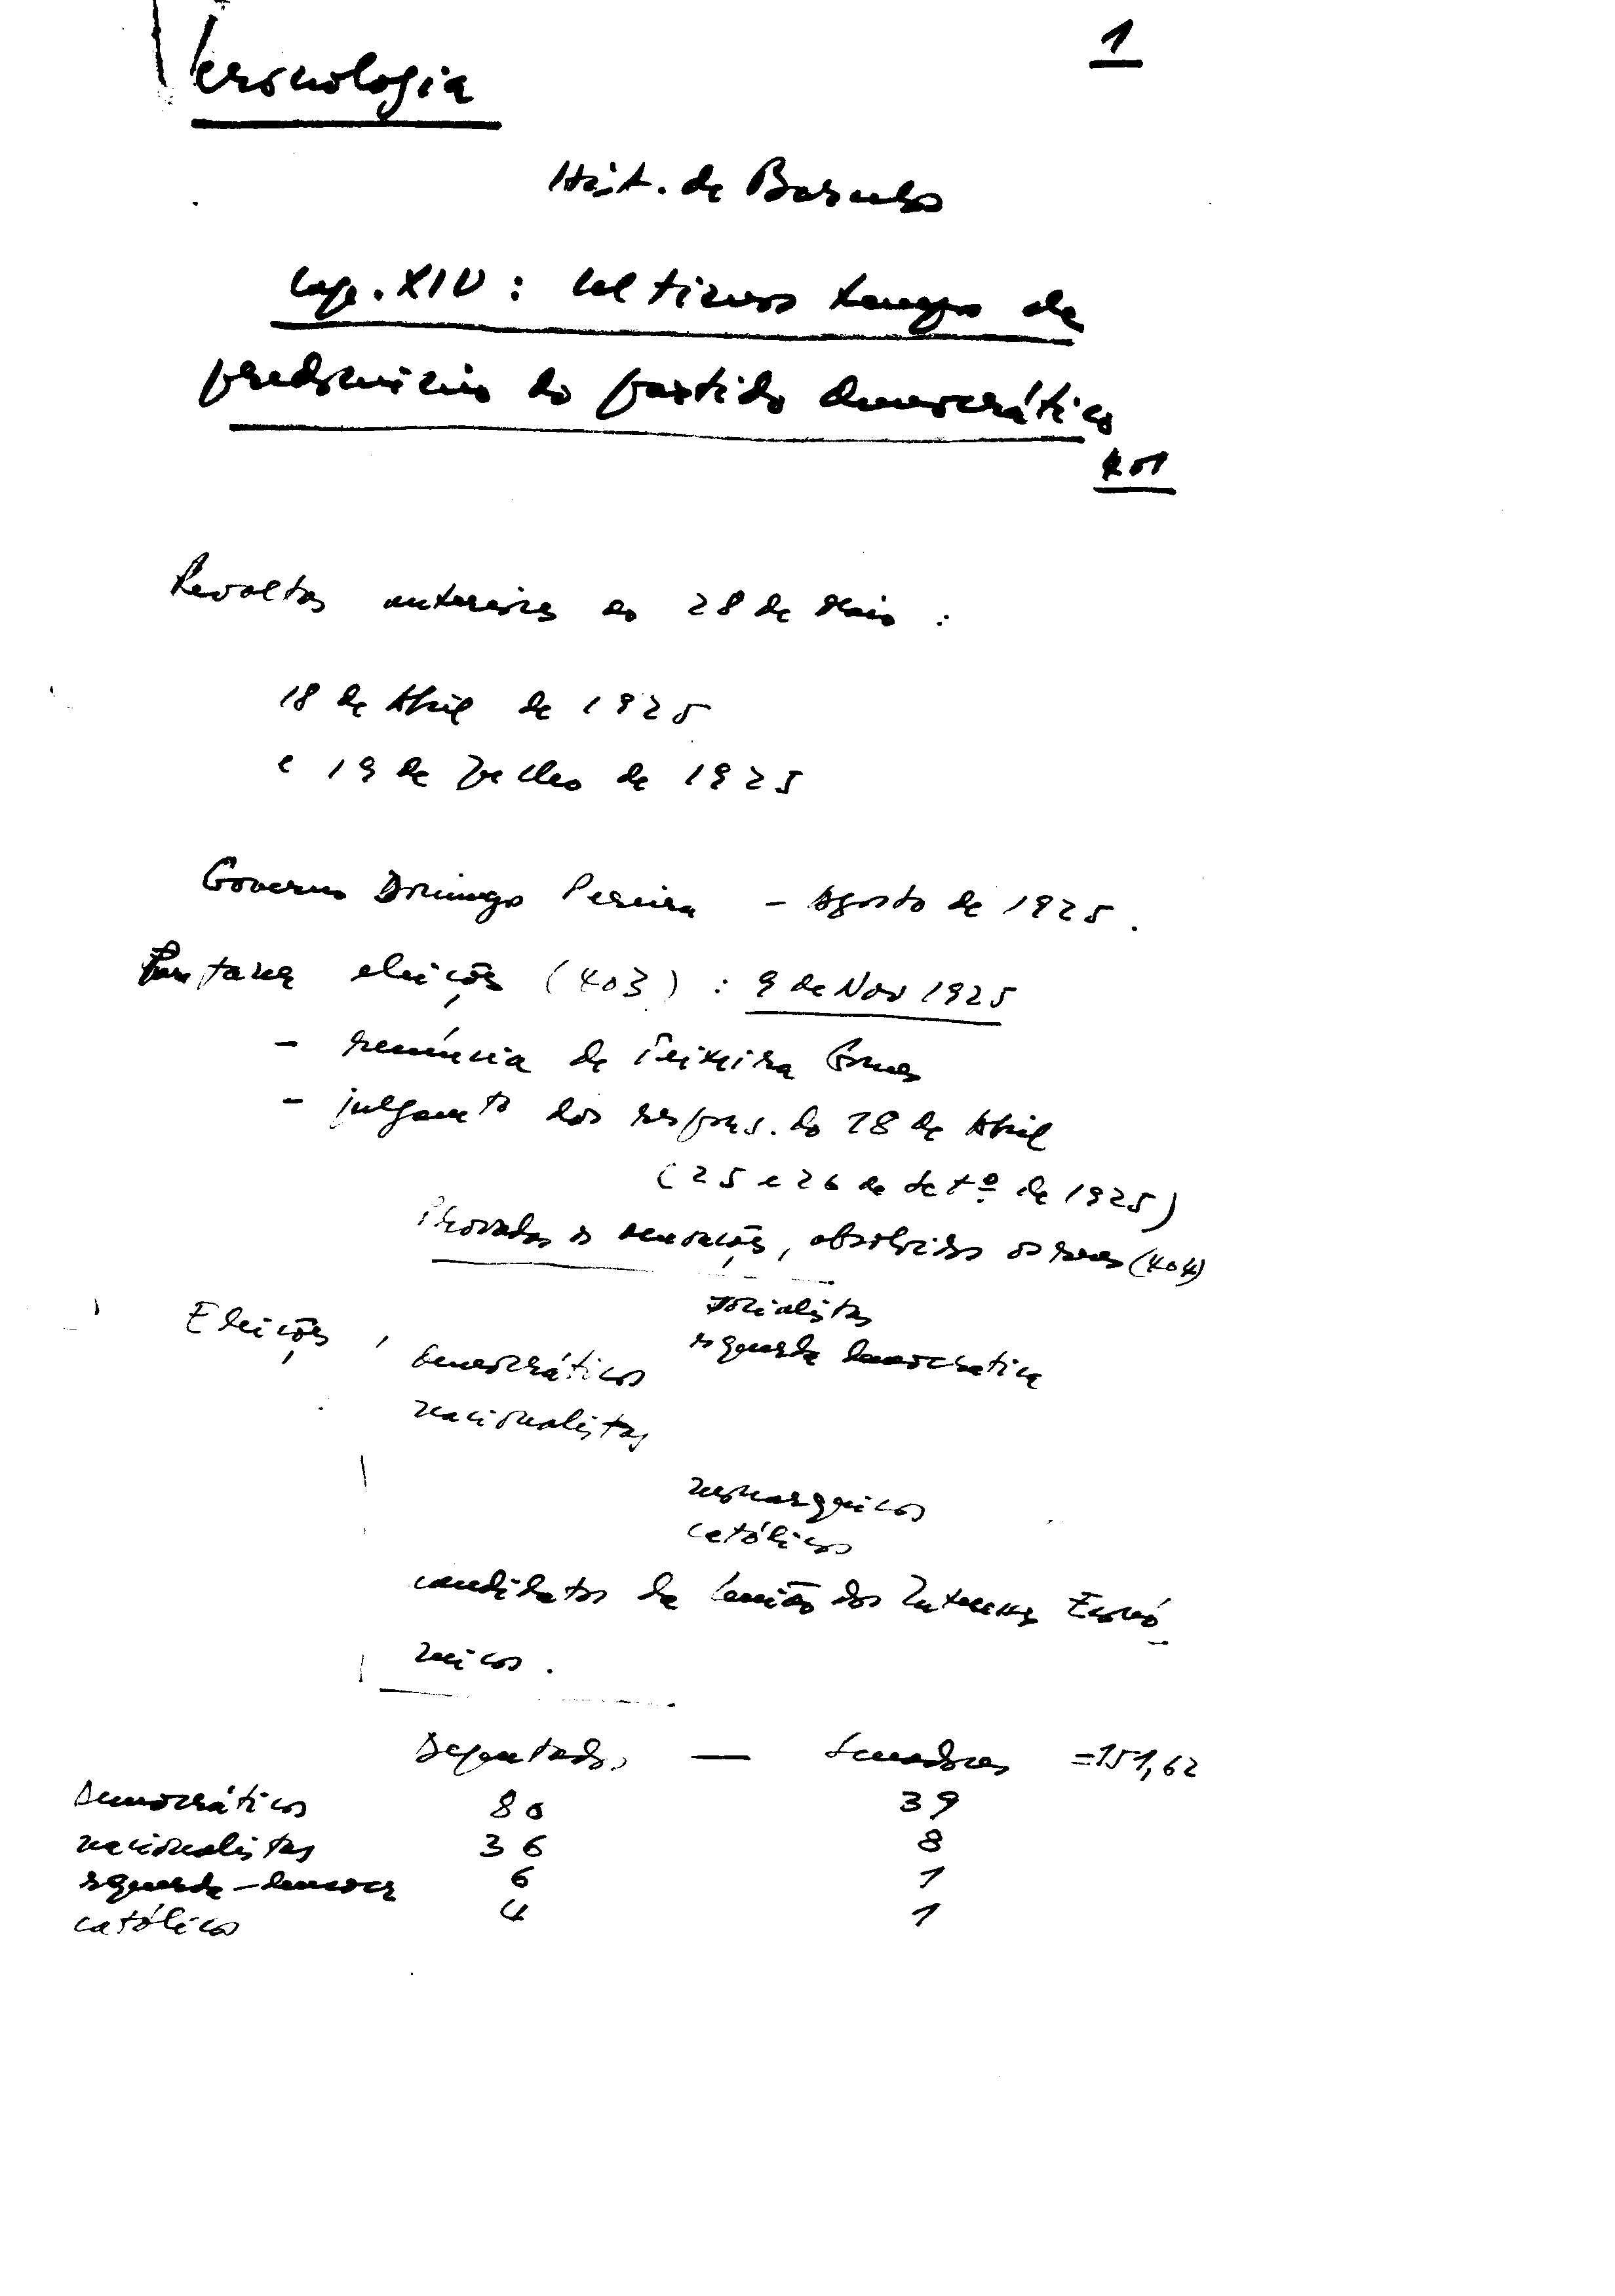 Cronologia
1
Hist. de Barcelos
Cap. XIV : Ultimos tempos de
predomínio do partido democrático
401
Revoltas anteriores ao 28 de Maio :
18 de Abril de 1925
e 19 de Julho de 1925
Governo Domingos Pereira - Agosto de 1925.
eleições (403) : 9 de Nov 1925
- renúncia de Teixeira Gomes
- julgamto dos respons. do 18 de Abril
(25 e 26 de Setº de 1925)
Provadas as acusações, absolvidos os réus (404)
socialistas
Eleições,
esquerda democratica
democráticos
nacionalistas
monarquicos
católicos
candidatos da União dos Interesses Econó
micos.
Deputados — Senadores =151,62
Democráticos 80 39
nacionalistas 36 8
esquerda-democr 6 1
católicos 4 1